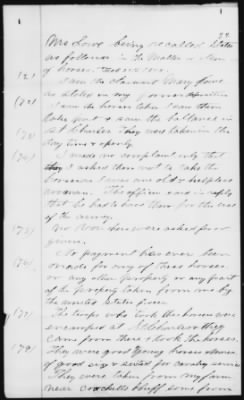 Mrs Lowe being recalled states
as follows in the Matter of Item
of horses.
(72) I am the claimant Mary Lowe
as stated in my former deposition
(73) I saw the horses taken I saw them
take part & saw the ballance in
(73) St Charles. They were taken in the
Day time & openly.
(74) I made no complaint only that
I asked them not to take the
horses as I was an old & helpless
woman. The officer said in reply
that he had to have them for the use
of the army.
(75) No Vouchers were asked for or
given.
(76) No payment has ever been
made for any of these horses
or any other property or any part
of the property taken from me by
the United States given
(77) The troops who took the horses was
encamped at St Charles & they
came from there & took the horses.
(79) They were good young horses &
of good size & suited for cavalry service
They were taken from my farm
near Crocketts bluff some from